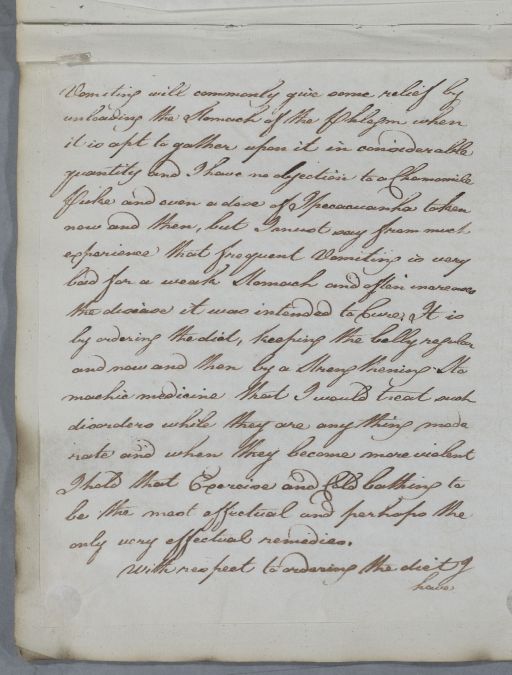 Vomiting will commonly give some relief by
unloading the Stomach of the Phlegm when
it is apt to gather upon it in considerable
quantity and I have no objection to a Chamomile
Puke and even a dose of Ipecacuanha taken
now and then, but I must say from much
experience that frequent Vomiting is very
bad for a weak Stomach and often increases
the disease it was intended to Cure; It is
by ordering the diet, keeping the belly regular
and now and then by a Strengthening Sto
machic medicine that I would treat such
disorders while they are any thing mode
rate and when they become more violent
I hold that Exercise and Cold bathing to
be the most effectual and perhaps the
only very effectual remedies.
With respect to ordering the diet I
have